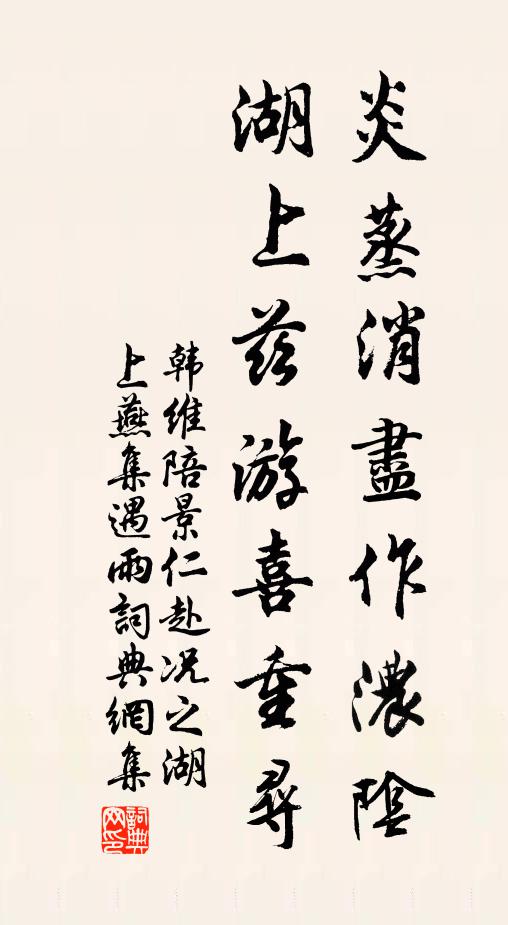 炎蒸消盡作濃陰
湖上茲游喜重尋
韩維陪景仁赴况之湖
上燕集遇雨詞典網集
詞典
网印